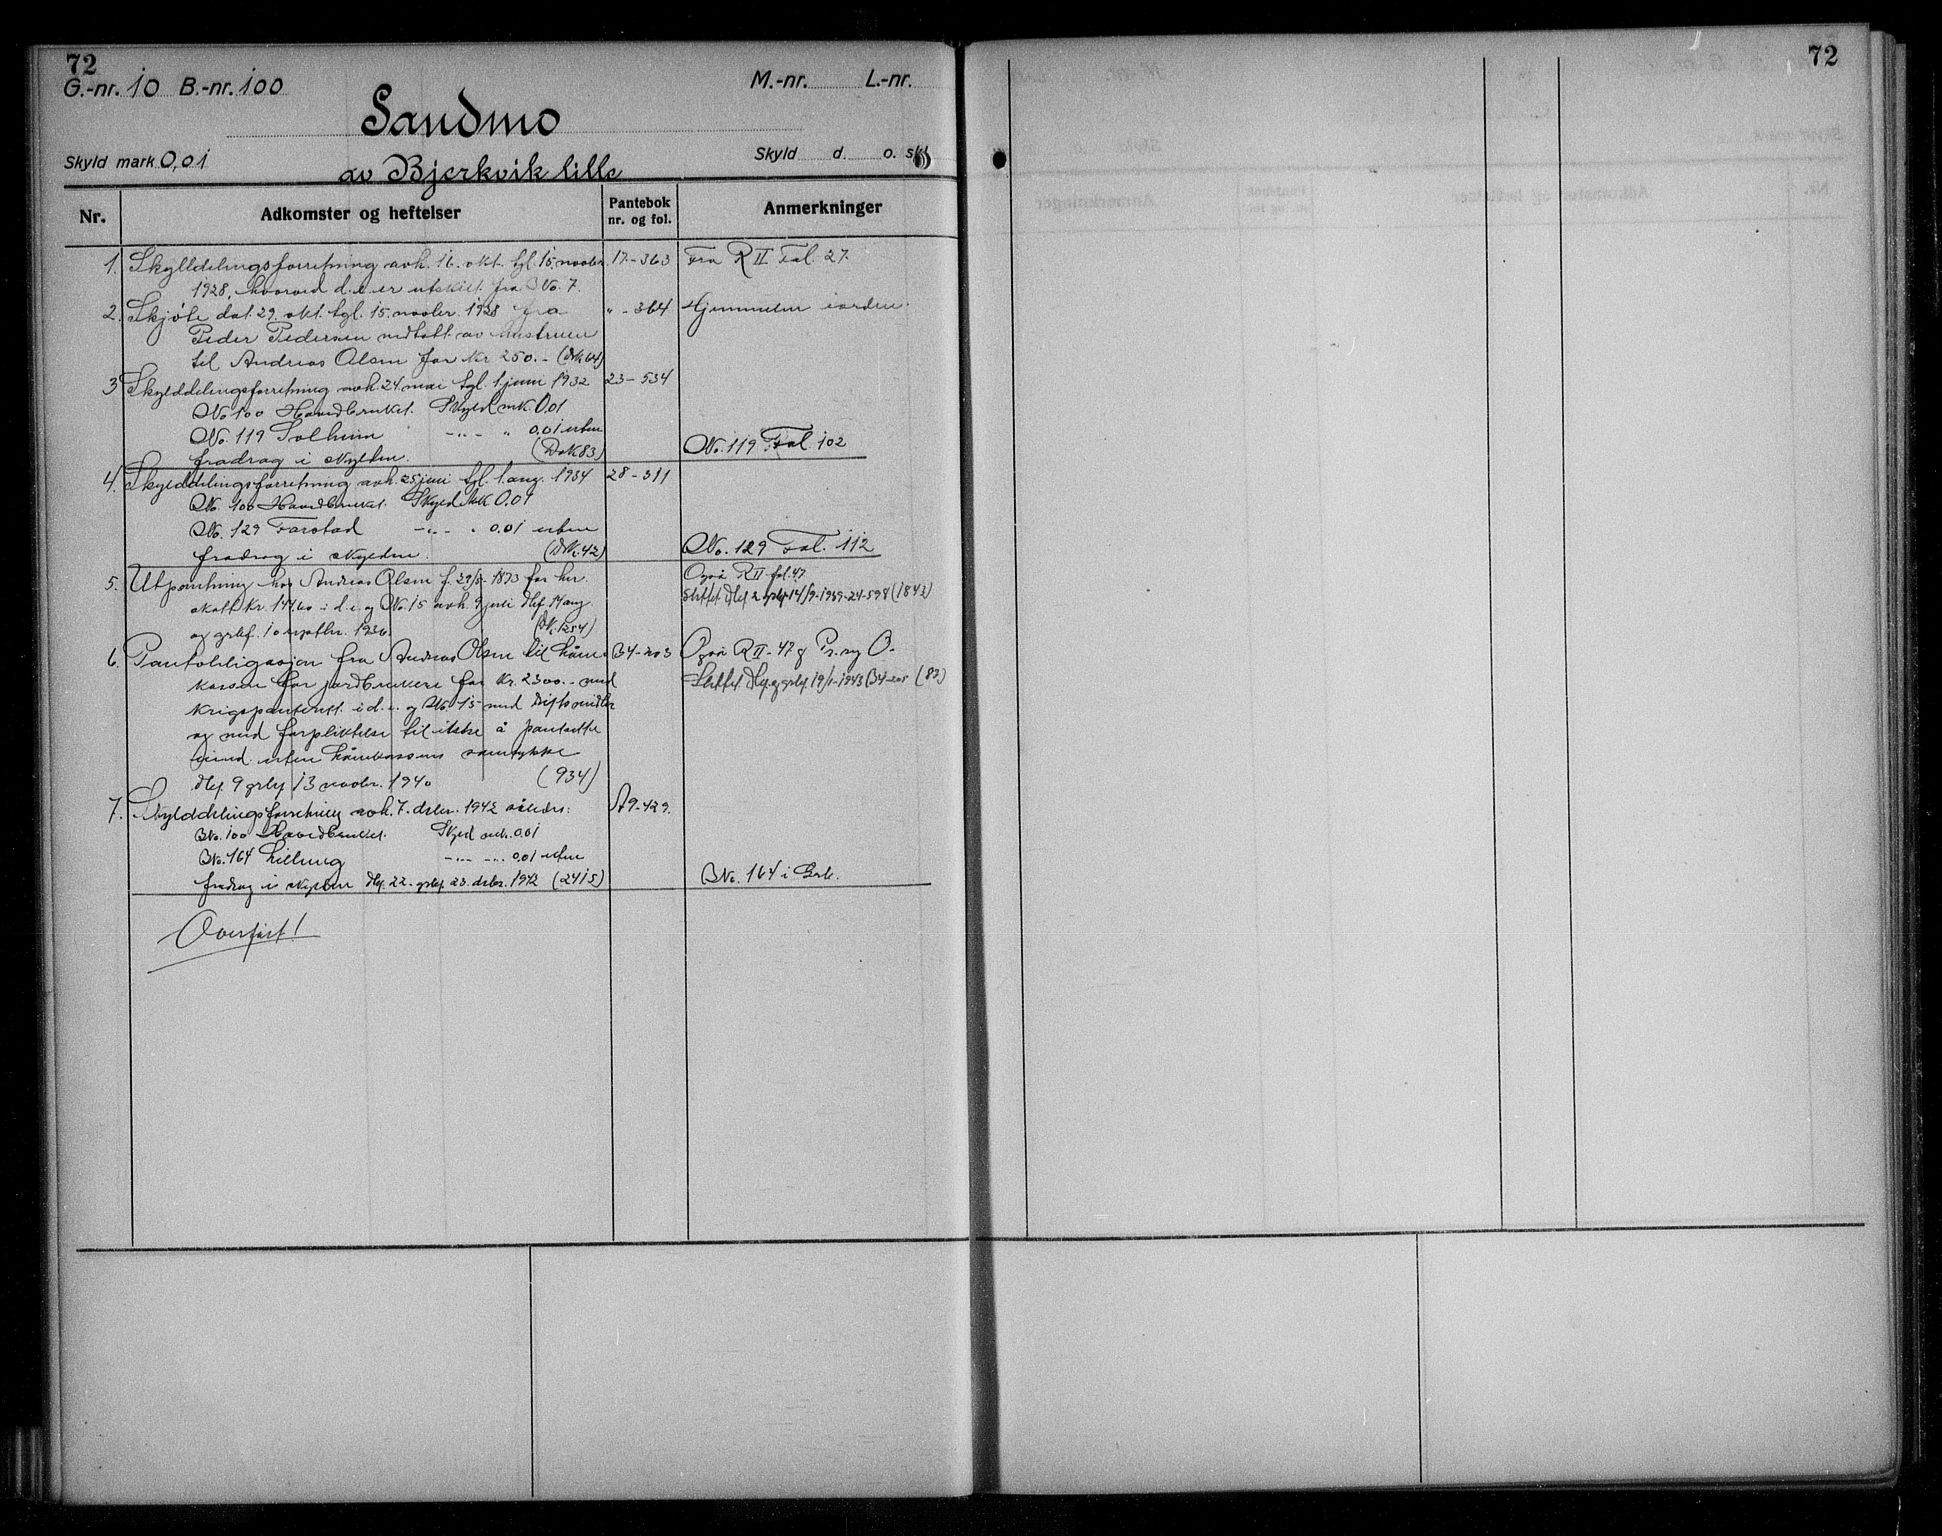 72
G.-nr. 10 B.-nr. 100 M.-nr. L.-nr.
Sandmo
Skyld mark 0,01 Skyld d. o. sk
av Bjerkvik lille
Nr. Adkomster og heftelser Pantebok nr. og fol. Anmerkninger
1. Skylddelingsforretning avh. 16. okt. tgl. 15. novbr. 17-363 Fra R II Fol. 27.
1928, hvorved d.e. er utskilt fra BNo. 7.
2. Skjöte dat. 29. okt. tgl. 15. novbr. 1928 fra " - 364 Hjemmelen iorden.
Peder Pedersen medtatt av hustruen
til Andreas Olsen for kr 250.- (Dok 64)
3 Skylddelingsforretning avh. 24. mai tgl. 1 juni 1932 23-534
No 100 Hovedbruket. Skyld mk. 0.01
No. 119 Solheim -"- " 0,01 uten
fradrag i skylden. (Dok 83) No. 119 Fol. 102
4. Skylddelingsforretning avh. 25 juni tgl. 1. aug. 1934 28-311
No. 100 Hovedbruket. Skyld mk 0.01
No. 129 Farstad -"- " 0.01 uten
fradrag i skylden. (Dok. 42) No. 129 Fol. 112
5. Utpantning hos Andreas Olsen f. 29/5-1873 for hr. Også R II fol. 47
skatt kr. 144.60 i d.e. og No. 15 avh. 9 juli dkf. 14 aug. Slettet dkf 2 grbf 14/9-1939-24-598 (1842)
og grbf. 10 septbr. 1936. (Dk. 1254)
6. Pantobligasjon fra Andreas Olsen til Låne- B4-203 Også R II-47 og
kassen for jordbrukere for kr. 2300.- med Slettet. dkf. og grbf. 19/1-1943 B4-205 (83)
i d.e. og No. 15 med driftsmidler
og med forpliktelse til ikke å pantsette
uten Lånekassens samtykke
dkf 9 grbf 13 novbr. 1940 (934)
7. Skylddelingsforretning avh. 7. desbr. 1942 således: A9-429.
BNo. 100 Hovedbruket. Skyld mrk. 0.01
BNo. 164 Lillung -"- -"- 0.01 uten
fradrag i skylden dkf. 22. grbf. 23. desbr. 1942 (2415) BNo. 164 i Grb.
Overført!
72